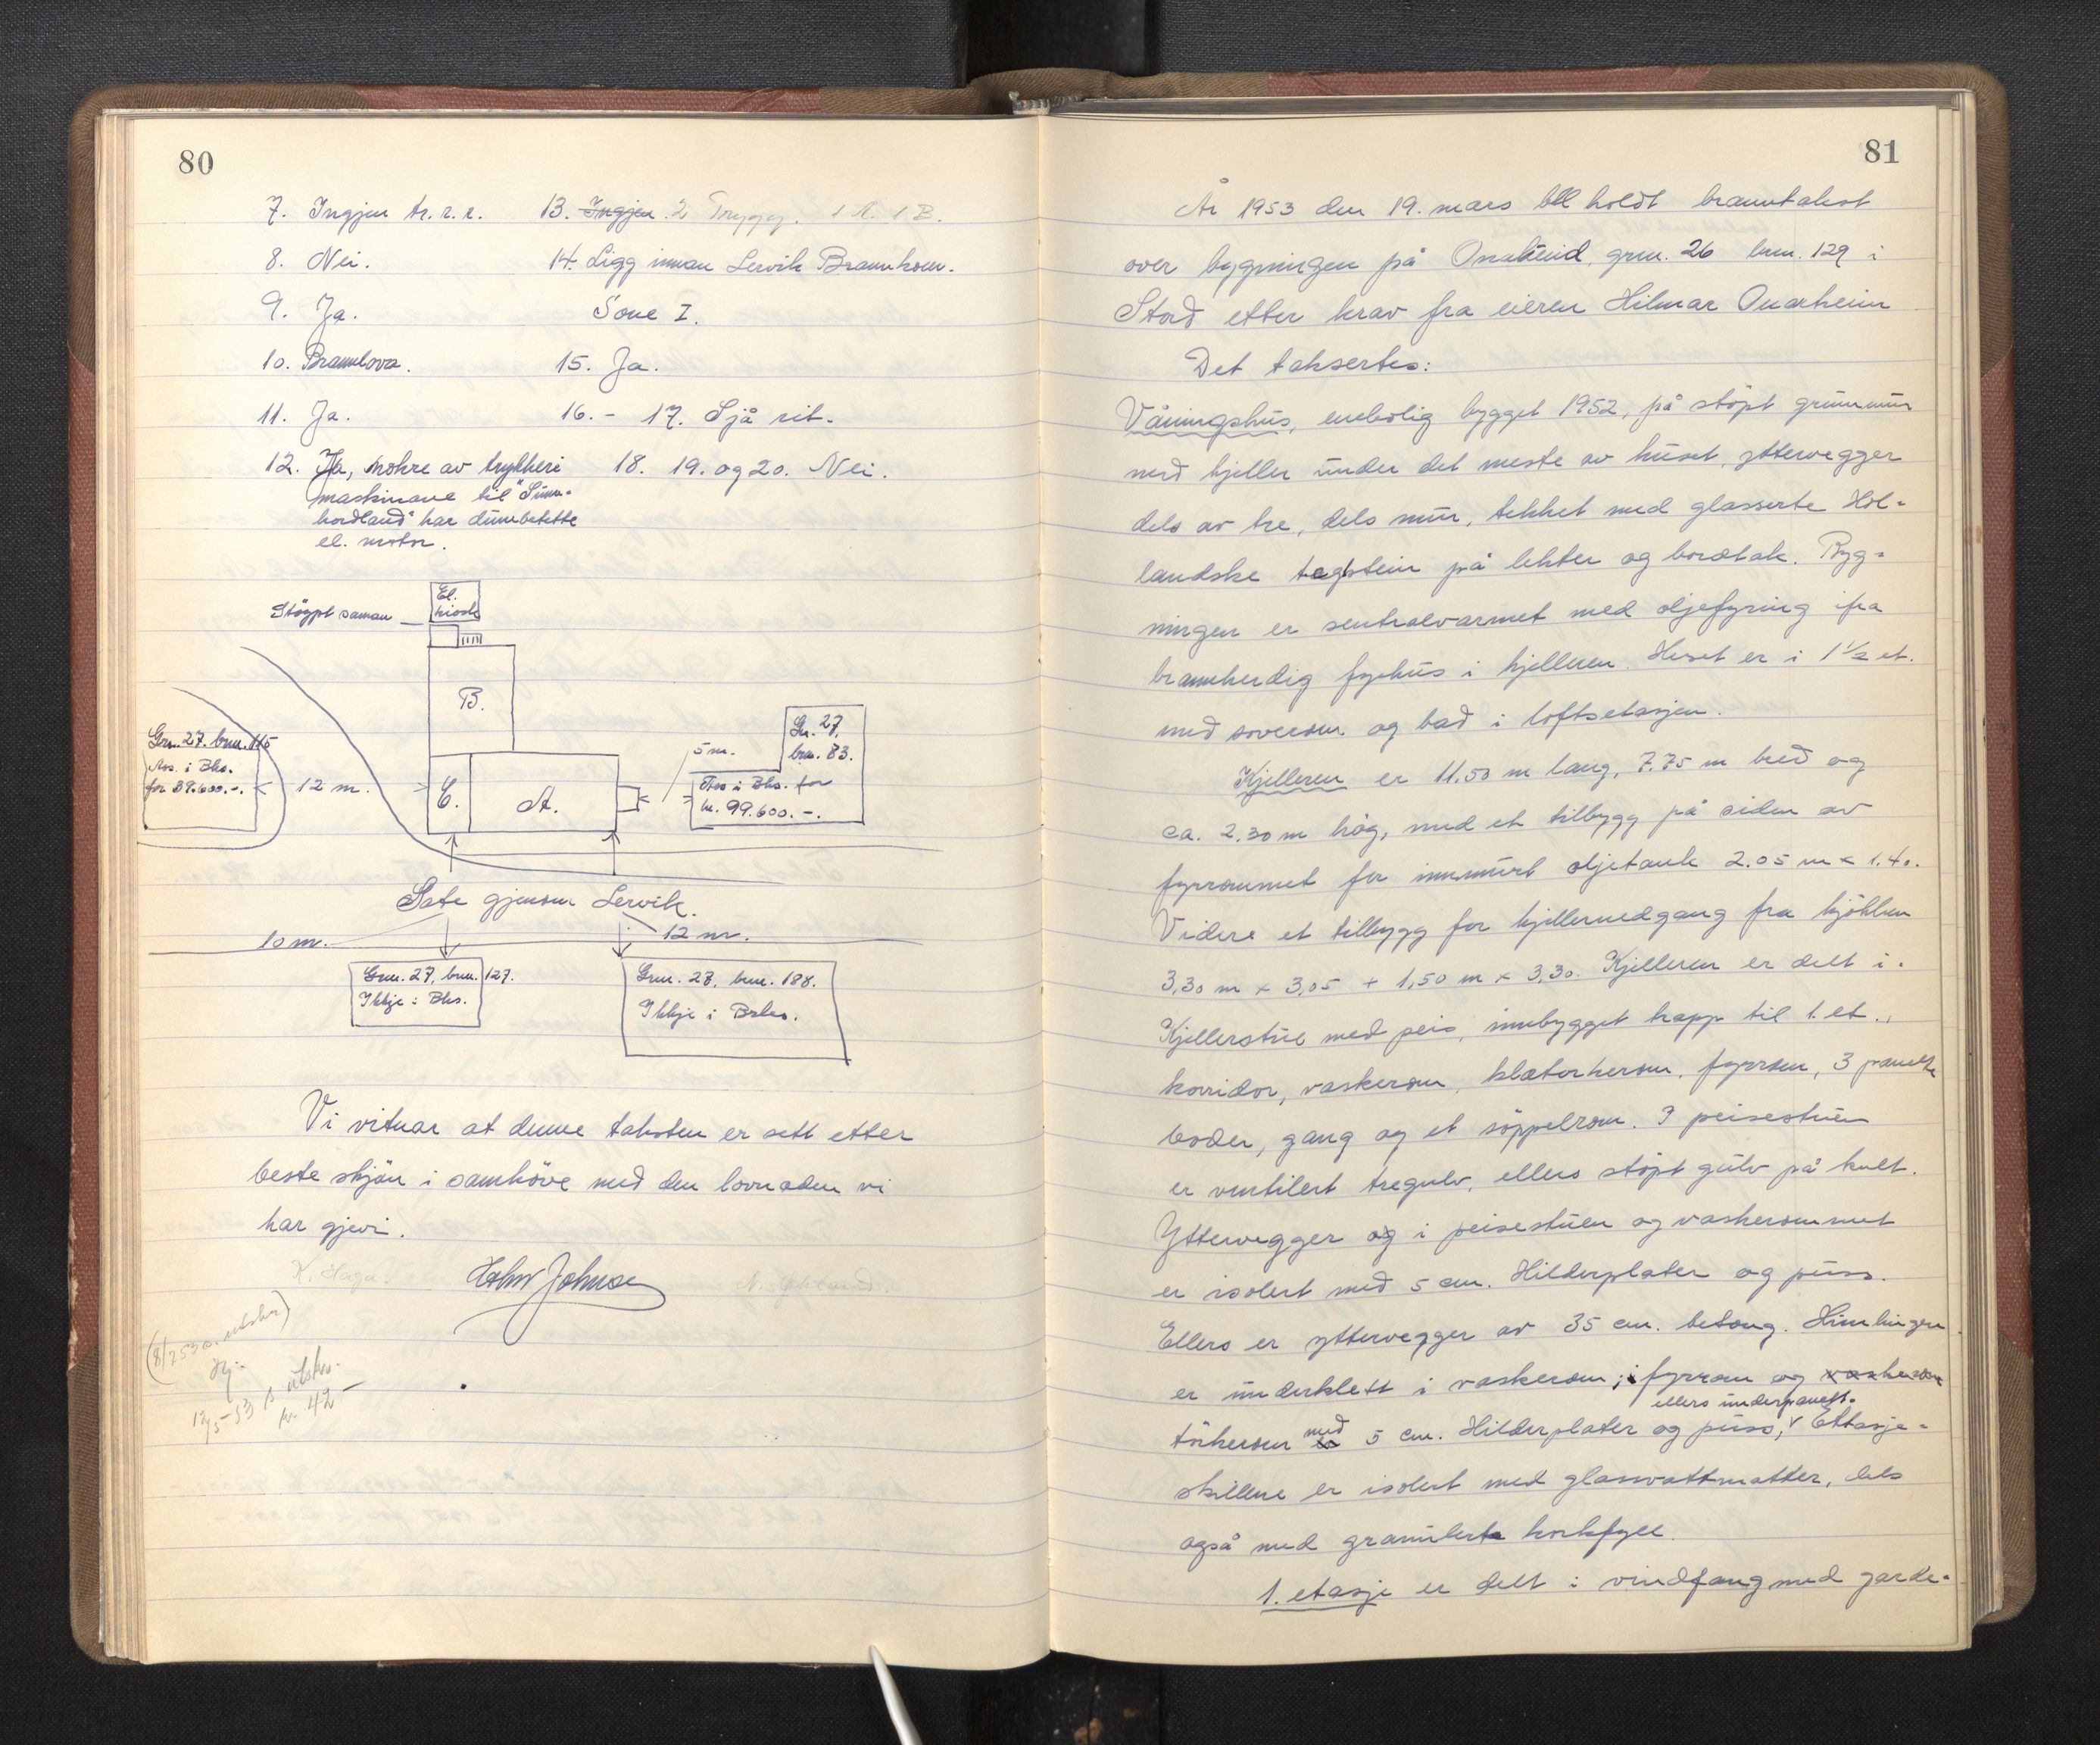 80
7. Ingjen tr. r. e.
13. Ingjen. 2 Trygg. 1 A. 1 B.
8. Nei.
14. Ligg innan Lervik Brannkom.
9. Ja.
Sone I.
10. Brannlova.
15. Ja.
11. Ja.
16. - 17. Sjå rit.
12. Ja, nokre av trykkeri
maskinane til "Sunn-
hordland" har
el. motor.
18. 19. og 20. Nei.
El.
kiosk
Støypt saman
B.
Gnr. 27. bnr. 115
Ass. i Bks.
for 39.600.-.
12 m.
C.
A.
5 m.
Gn. 27,
bnr. 83.
Ass i Bks. for
kr. 99.600.-.
Gate gjenom Lervik.
10 m.
12 m.
Gnr. 27, bnr. 127.
Ikkje i Bks.
Gnr. 27, bnr. 188.
Ikkje i Brks.
Vi vitnar at denne taksten er sett etter
beste skjön i samhöve med den lovnaden vi
har gjevi.
K. Haga.
utskr.
kr. 42-
81
År 1953 den 19. mars ble holdt branntakst
over bygningen på gnr. 26 bnr. 129 i
Stord etter krav fra eieren Hilmar Onarheim
Det taksertes:
Våningshus, enebolig bygget 1952, på støpt grunnmur
med kjeller under det meste av huset, yttervegger
dels av tre, dels mur, tekket med glasserte Hol-
landske tagstein på lekter og bordtak. Byg-
ningen er sentralvarmet med oljefyring ifra
brannherdig fyrhus i kjelleren. Huset er i 1 1/2 et.
med soverom og bad i loftsetasjen.
Kjelleren er 11.50 m lang, 7.75 m bred og
ca. 2.30 m høg, med et tilbygg på siden av
fyrrommet for innmurt oljetank 2.05 m x 1.40.
Videre et tilbygg for kjellernedgang fra kjökken
3,30 m x 3,05 + 1,50 m x 3,30. Kjelleren er delt i.
Kjellerstue med peis, innbygget trapp til 1. et.,
korridor, vaskerom, klætørkerom, fyrrom, 3 panelte
boder, gang og et söppelrom. I peisestuen
er ventilert tregulv, ellers støpt gulv på kult.
Yttervegger og i peisestuen og vaskerommet
er isolert med 5 cm. Hilderplater og puss.
Ellers er yttervegger av 35 cm. betong. Himlingen
er underklett i vaskerom, i fyrrom og vaskerom
ellers underpanelt.
törkerom med 5 cm. Hilderplater og puss, v Ettasje-
skillene er isolert med glassvattmatter, dels
også med granulerte korkfyll.
1. etasje er delt i vindfang med garde-